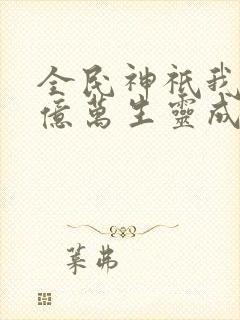 全民神祇我
億萬生靈成
葉弗